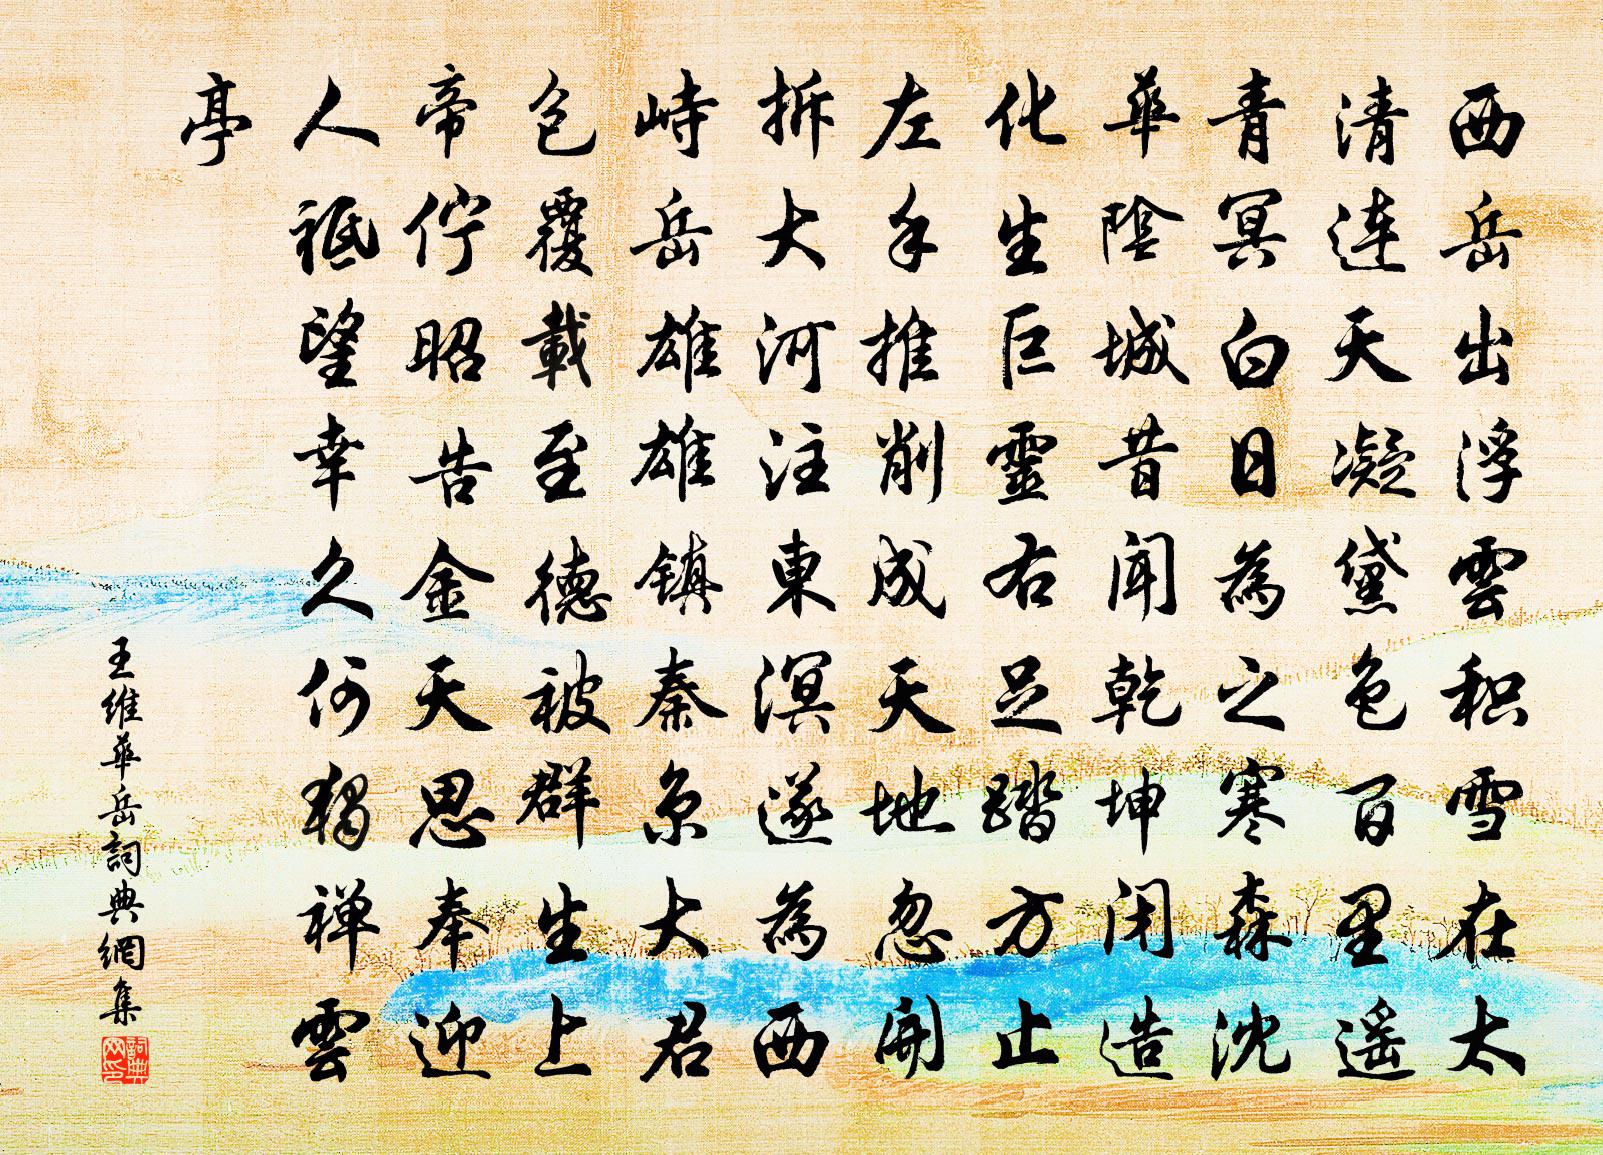 西岳出浮雲积雪在太
清连天凝黛色百里遥
青冥白日為之寒森沈
華陰城昔闻乾坤闭造
化生巨靈右足踏方止
左手推削成天地忽開
拆大河注東溟遂為西
峙岳雄雄镇秦京大君
包覆載至德被群生上
帝佇昭告金天思奉迎
人祗望幸久何獨禅雲
亭
王維華岳詞典網集
詞典网印